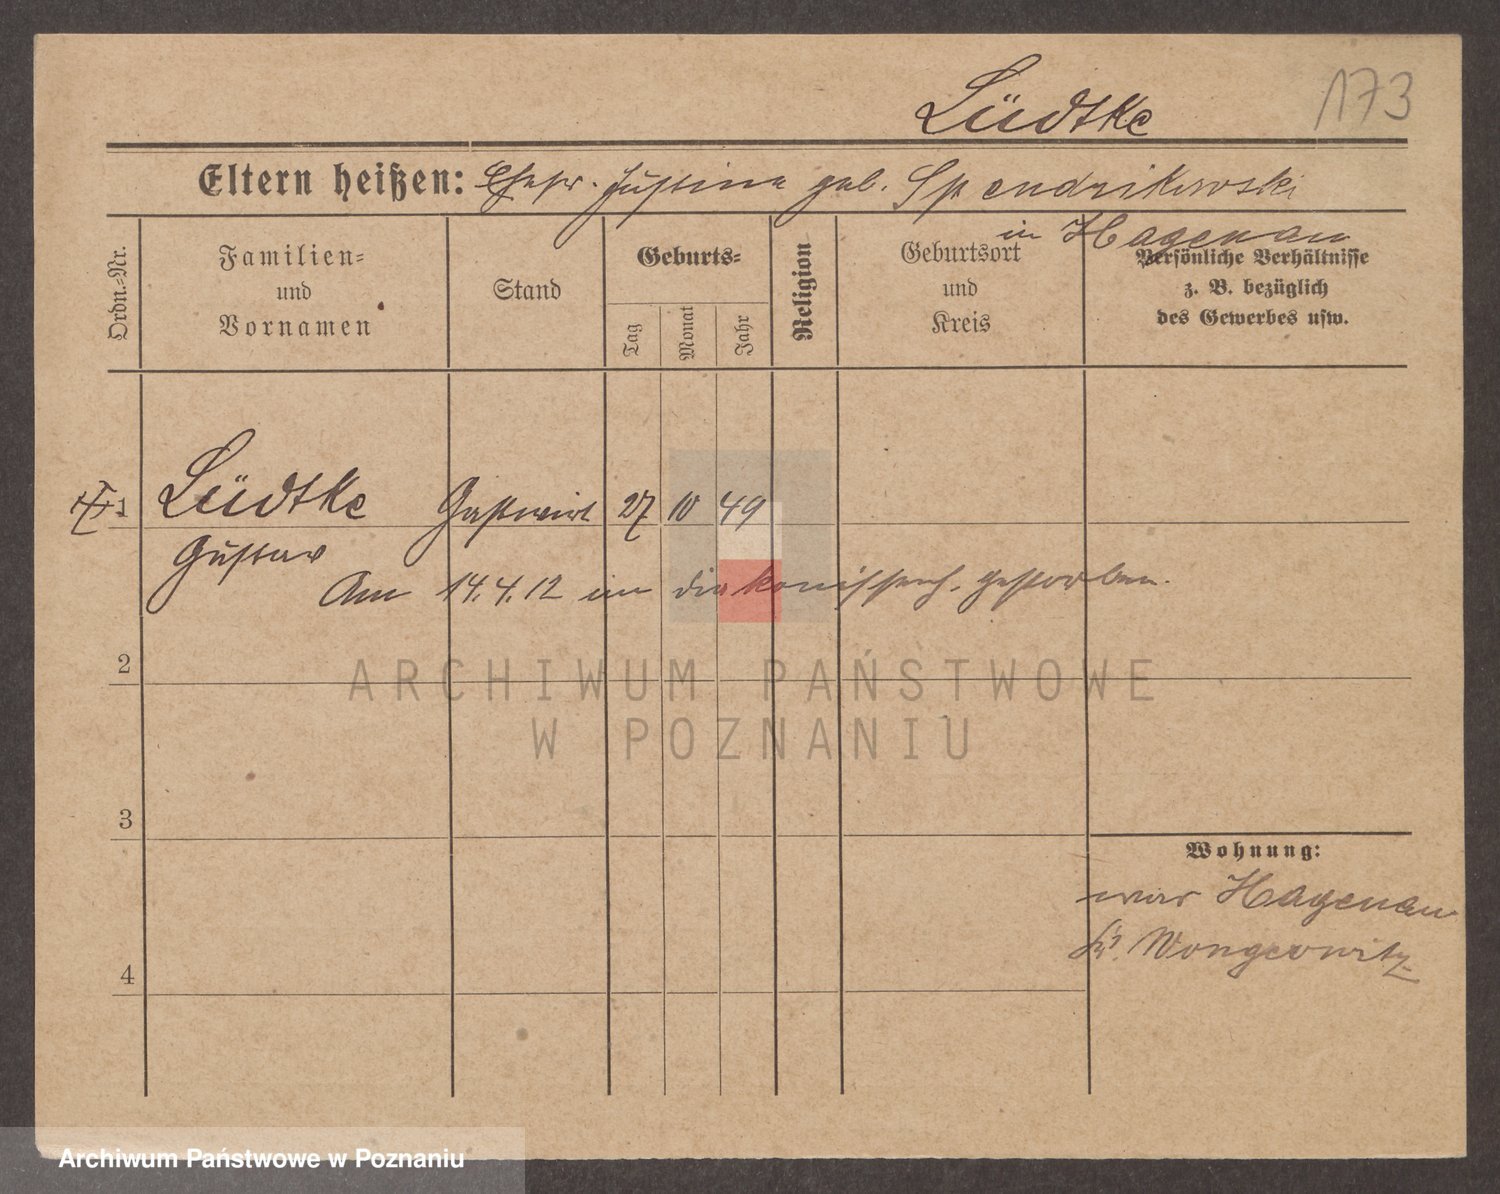 173
Lüdtke
Eltern heißen: Ehefr. Justina geb. Spendzikowski
in Hagenau
Ordn.-Nr.
Familien- und Vornamen
Stand
Geburts-
Tag
Monat
Jahr
Religion
Geburtsort und Kreis
Persönliche Verhältnisse z. B. bezüglich des Gewerbes usw.
1 Lüdtke Gastwirt 27 10 49
Gustav
Am 14.4.12 im gestorben.
2
3
4
Wohnung:
war Hagenau
Kr. Wongrowitz
ARCHIWUM PAŃSTWOWE
W POZNANIU
Archiwum Państwowe w Poznaniu